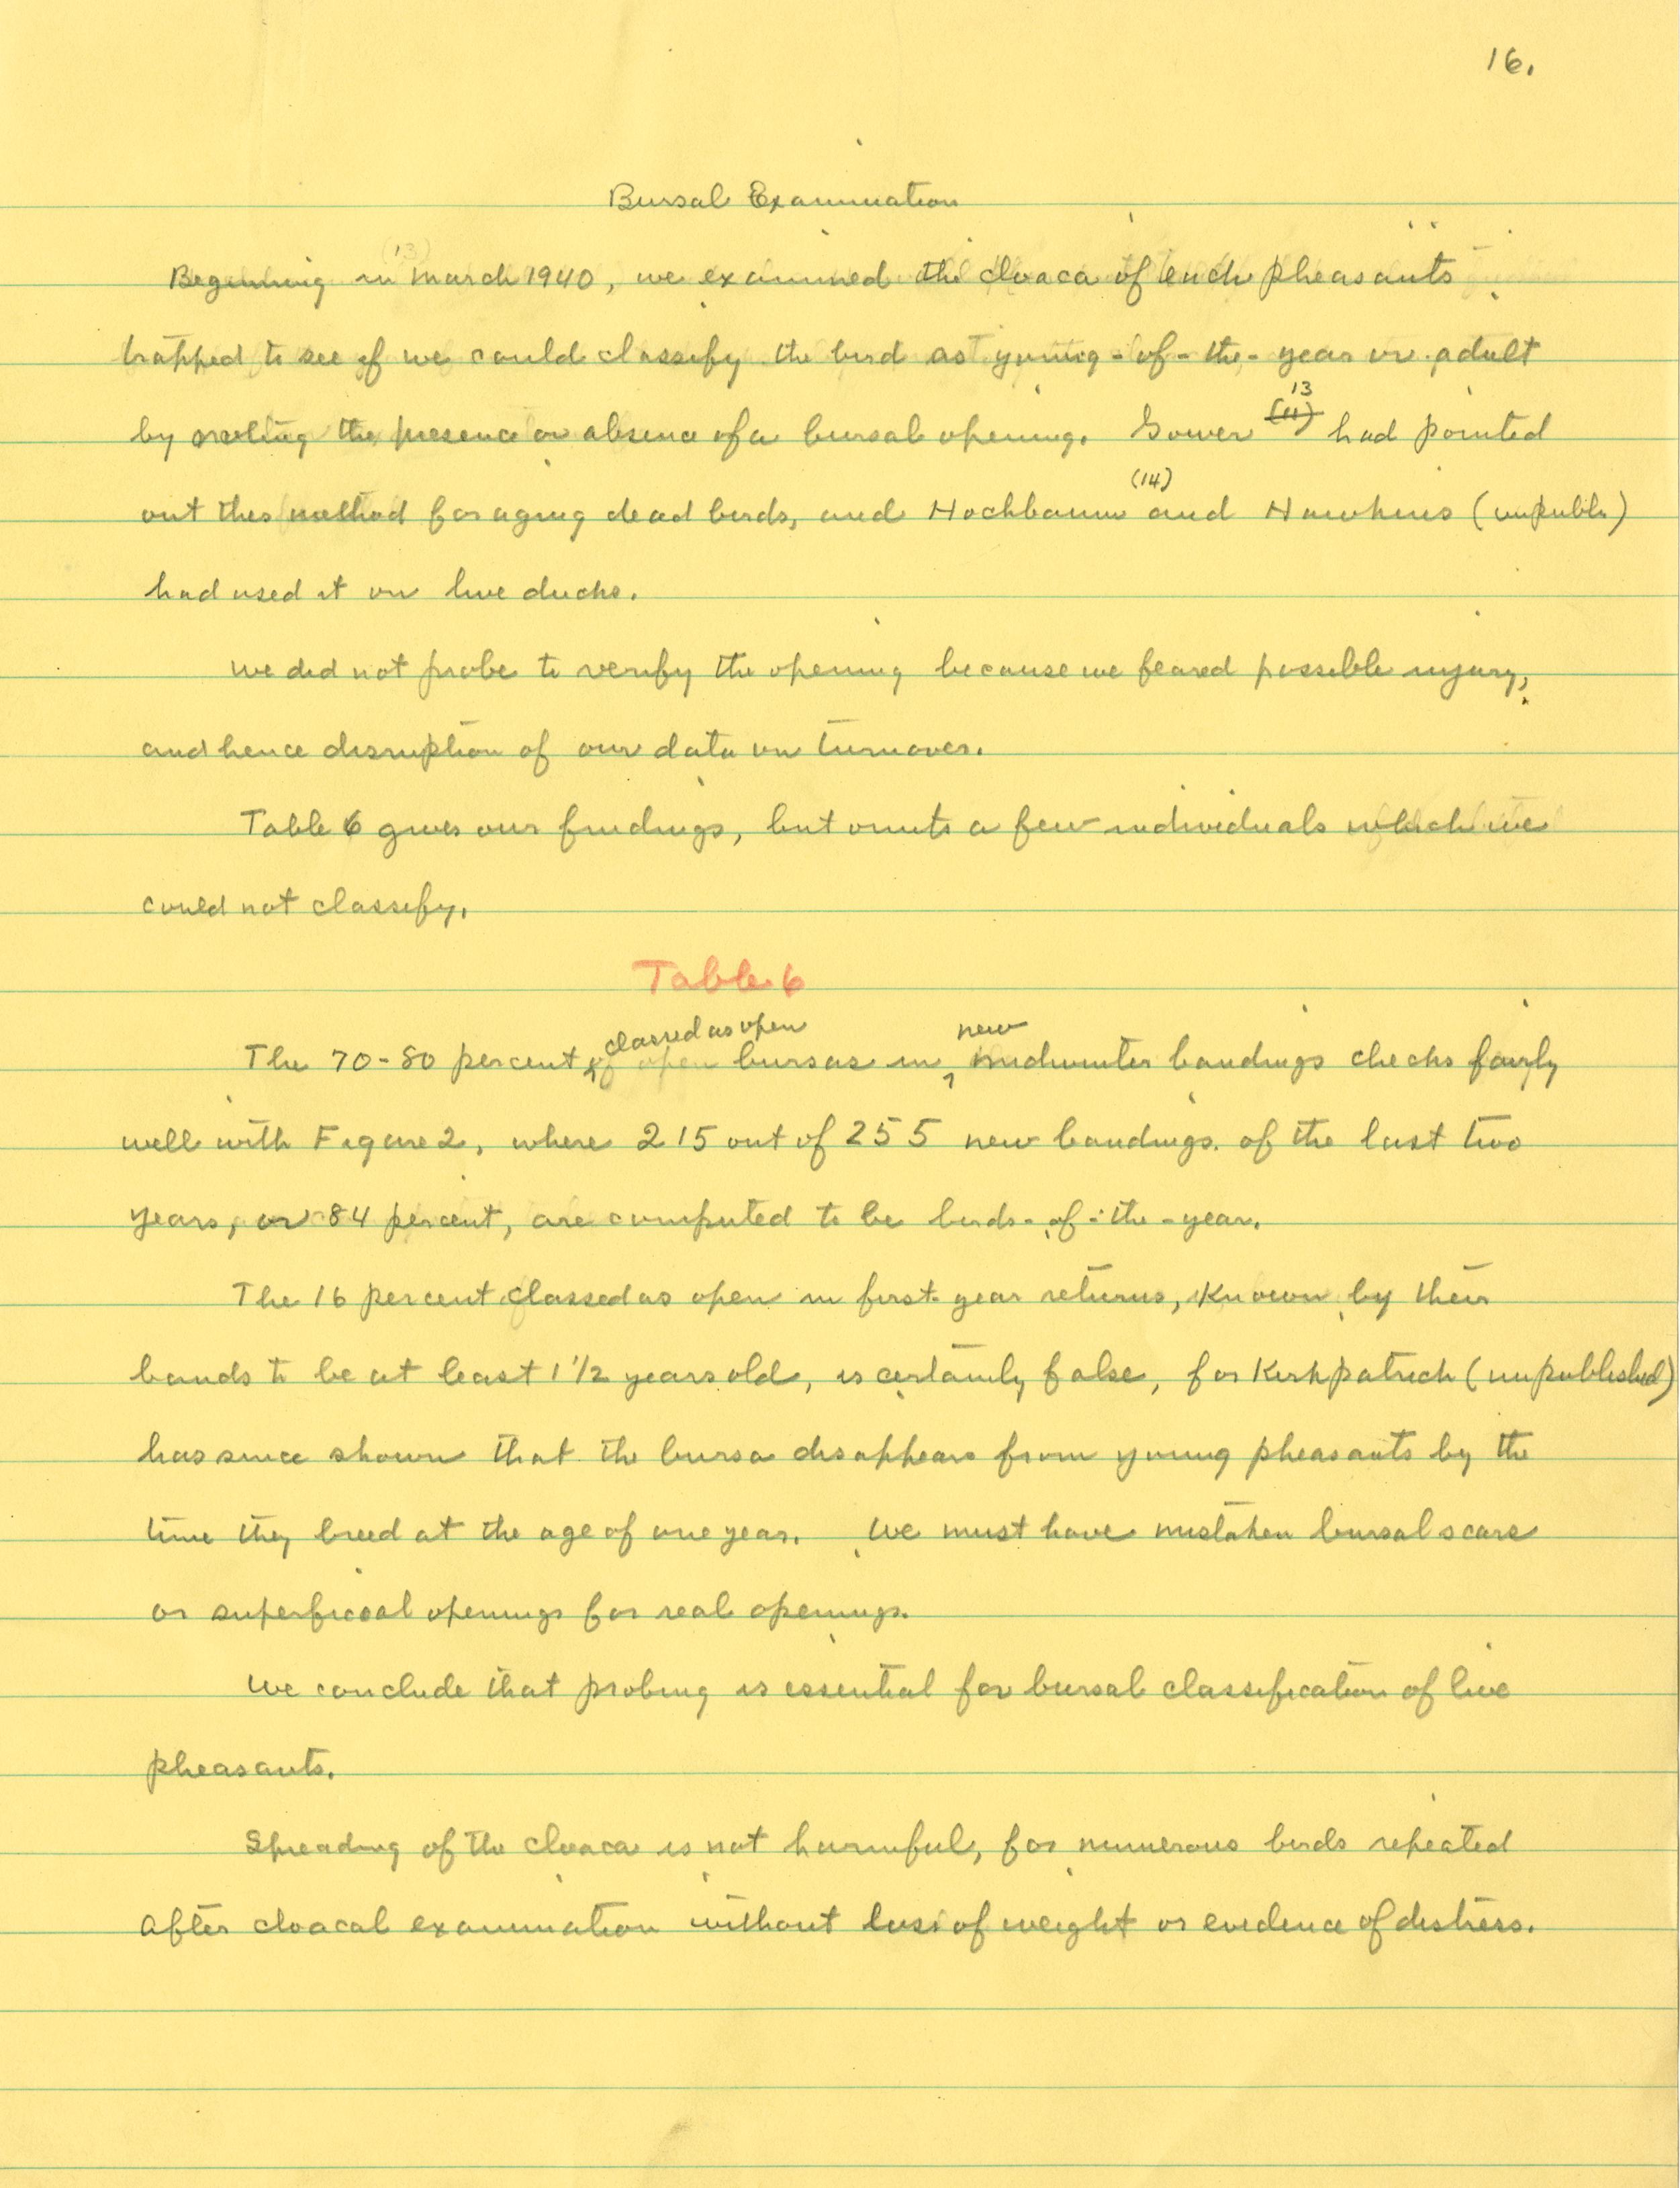 16.
Bursal Examination
Beginning in March 1940, we examined the cloaca of each pheasants
trapped to see if we could classify the bird as young-of-the-year or adult
by noting the presence or absence of a bursal opening. Gower (11) 13 had pointed
out this method for aging dead birds, and Hochbaum (14) and Hawkins (unpubl.)
had used it on live ducks.
We did not probe to verify the opening because we feared possible injury,
and hence disruption of our data on turnover.
Table 6 gives our findings, but omits a few individuals which we
could not classify.
Table 6
The 70-80 percent classed as open bursas in new midwinter bandings checks fairly
well with Figure 2, where 215 out of 255 new bandings of the last two
years, or 84 percent, are computed to be birds-of-the-year.
The 16 percent classed as open in first-year returns, known by their
bands to be at least 1 1/2 years old, is certainly false, for Kirkpatrick (unpublished)
has since shown that the bursa disappears from young pheasants by the
time they breed at the age of one year. We must have mistaken bursal scars
or superficial openings for real openings.
We conclude that probing is essential for bursal classification of live
pheasants.
Spreading of the cloaca is not harmful, for numerous birds repeated
after cloacal examination without loss of weight or evidence of distress.